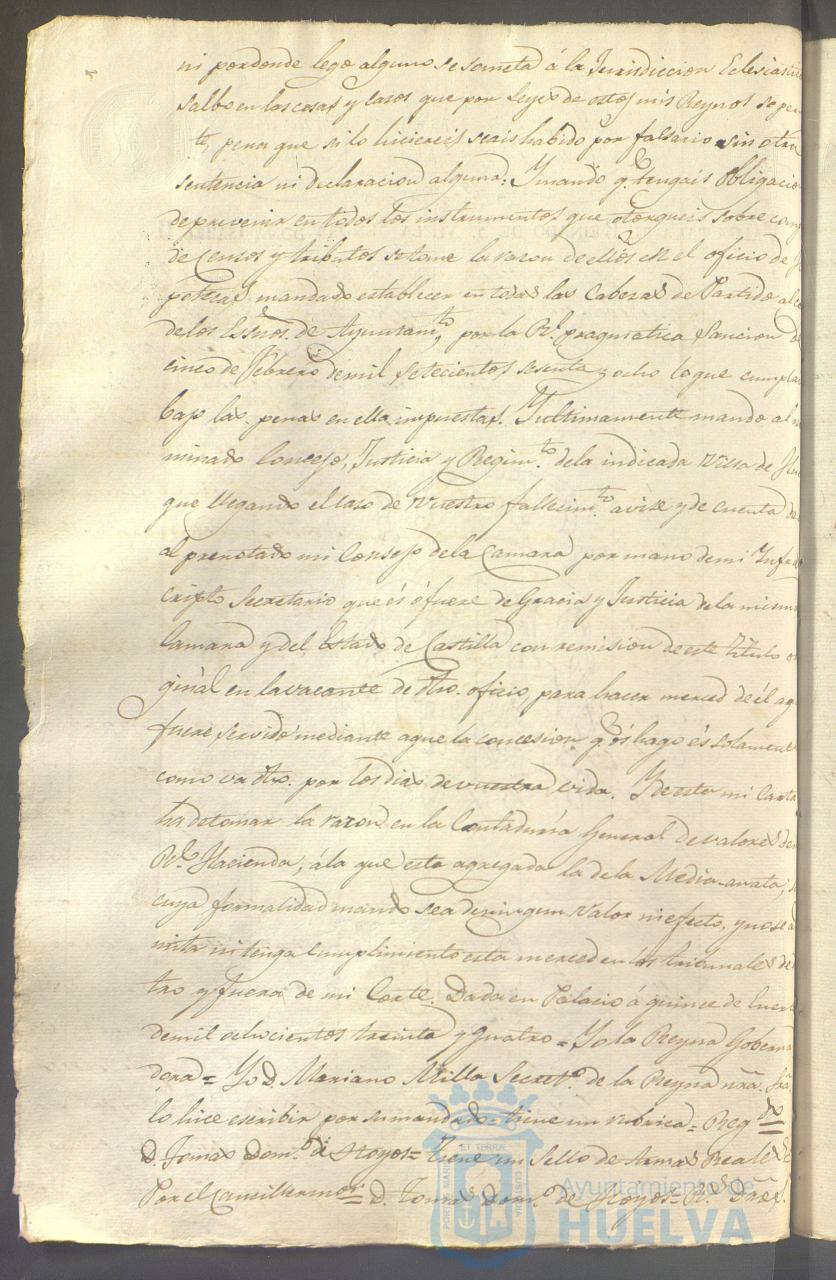 ni por donde lego alguno se someta á la Jurisdiccion Eclesiasti
salbo en las cosas y casos que por Leyes de estos mis Reynos se per
te, pena que si lo hiciereis seais habido por falsario sin otra
sentencia ni declaracion alguna: Y mando q.e tengais obligacio
de prevenir en todos los instrumentos que otorgueis sobre comp
de Censos y tributos se tome la razon de ellos en el oficio de
potecas mandado establecer en todas las Cabezas de Partido a
de los Essnos. de Ayuntam.to, por la Rl. pragmatica Sancion de
cinco de Febrero de mil setecientos sesenta y ocho lo que cumpla
bajo las penas en ella impuestas. Y ultimamente mando al
minado Concejo, Justicia y Regim.to de la indicada Villa de
que llegando el caso de vuestro fallecim.to avise y de cuenta de
al prenotado mi Consejo de la Camara por mano de mi Infras
cripto Secretario que és ó fuere de Gracia y Justicia de la misma
Camara y del Estado de Castilla con remision de este Titulo o
ginal en la vacante de dho. oficio, para hacer merced de él a q
fuere servido mediante a que la concesion q.e os hago és solament
como va dho. por los dias de vuestra vida. Y de esta mi Carta
ha de tomar la razon en la Contaduria General de valores de
Rl. Hacienda, á la que está agregada la de la Media-anata,
cuya formalidad mando sea de ningun valor ni efecto, y no se ad
mita ni tenga cumplimiento esta merced en los tribunales de
tro y fuera de mi Corte. Dada en Palacio á quince de Ener
de mil ochocientos treinta y quatro = Yo la Reyna Goberna
dora = Yo D. Mariano Milla Secret.o de la Reyna nra. Sra
lo hice escribir por su mandado = tiene un rubrica = Reg.do
D. Tomas Dom.o de Hoyos = tiene un Sello de Armas Reales
Por el Canciller mor. = D. Tomas Dom.o de Hoyos = Rs. Dros.
ET TERRAE
Ayuntamiento de
HUELVA